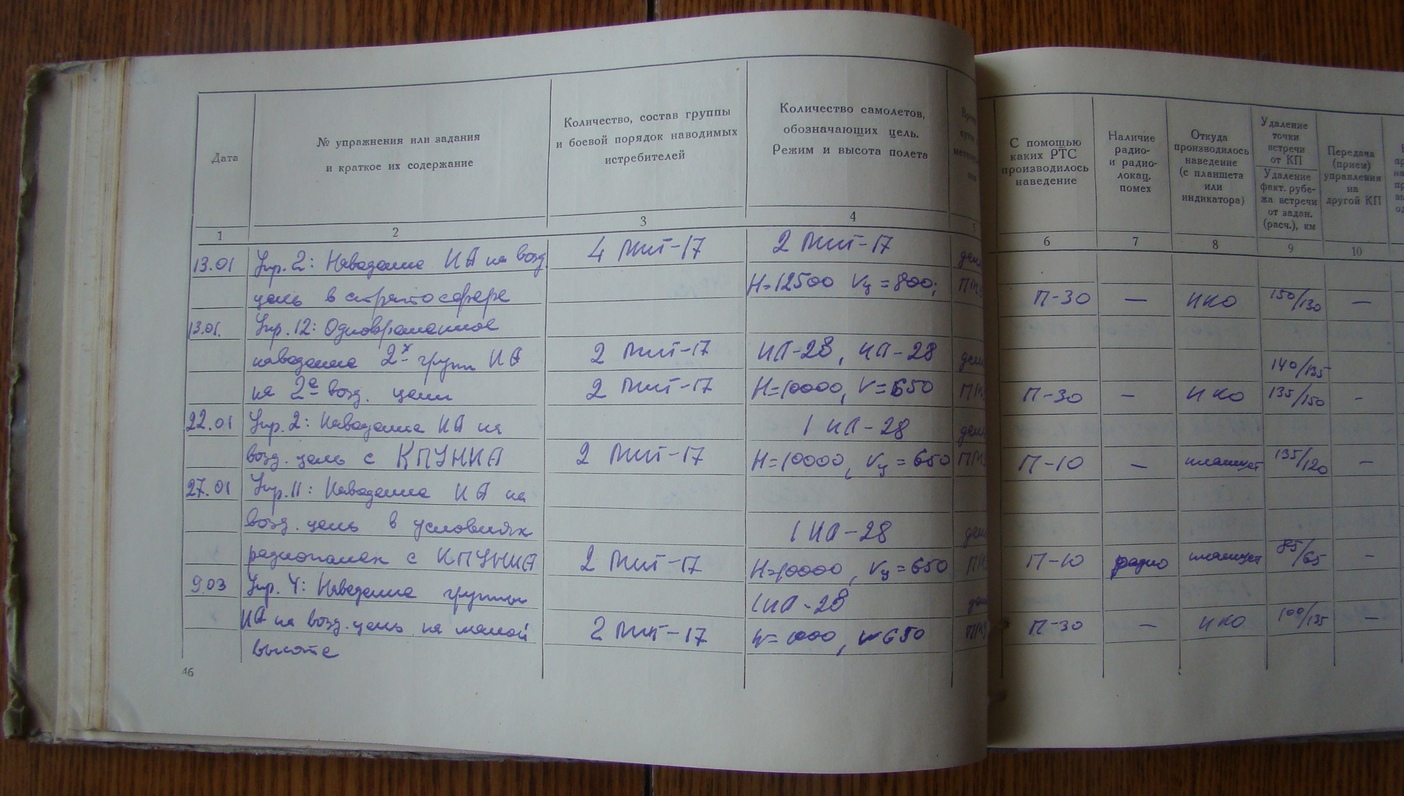 Дата
№ упражнения или задания
и краткое их содержание
Количество, состав группы
и боевой порядок наводимых
истребителей
Количество самолетов,
обозначающих цель.
Режим и высота полета
С помощью
каких РТС
производилось
наведение
Наличие
радио-
и радио-
локац.
помех
Откуда
производилось
наведение
(с планшета
или
индикатора)
Удаление
точки
встречи
от КП
Удаление
факт. рубе-
жа встречи
от задан.
(расч.), км
Передача
(прием)
управления
на
другой КП
1 2 3 4 5 6 7 8 9 10
13.01 Упр. 2: Наведение ИА на возд. 4 МиГ-17 2 МиГ-17
цель в стратосфере Н=12500 Vц = 800; П-30 — ИКО 150/130 —
13.01. Упр. 12: Одновременное
наведение 2х групп ИА 2 МиГ-17 ИЛ-28, ИЛ-28 140/135
на 2е возд. цели 2 МиГ-17 Н=10000, V=650 П-30 – ИКО 135/150 –
22.01 Упр. 2: Наведение ИА на 1 ИЛ-28
возд. цель с КПУНИА 2 МиГ-17 Н=10000, Vц = 650 П-10 – планшет 135/120 –
27.01 Упр. 11: Наведение ИА на
возд. цель в условиях 1 ИЛ-28
радиопомех с КПУНИА 2 МиГ-17 Н=10000, Vц = 650 П-10 радио планшет 85/65 –
9.03 Упр. 4: Наведение группы 1 ИЛ-28
ИА на возд. цель на малой 2 МиГ-17 П-30 – ИКО 100/135 –
высоте
46